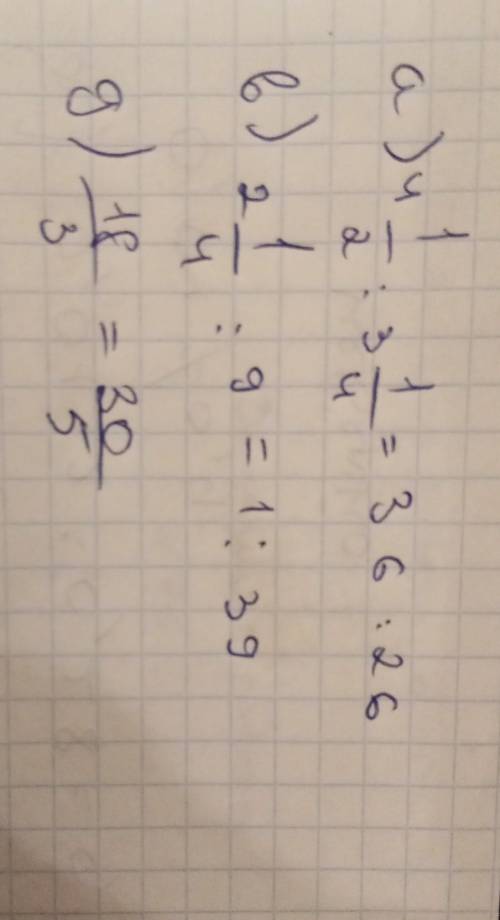 а) 4 1/2 : 3 1/4 = 36 : 26
в) 2 1/4 : 9 = 1 : 39
д) 18/3 = 30/5